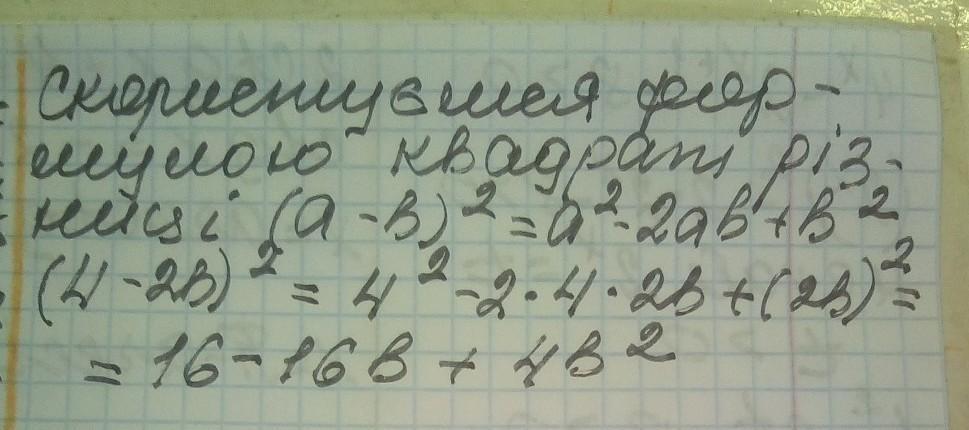 Скориситуємся фор-
мулою квадрат різ-
ниці (a-b)² = a²-2ab+b²
(4-2b)² = 4²-2·4·2b+(2b)²=
= 16-16b+4b²